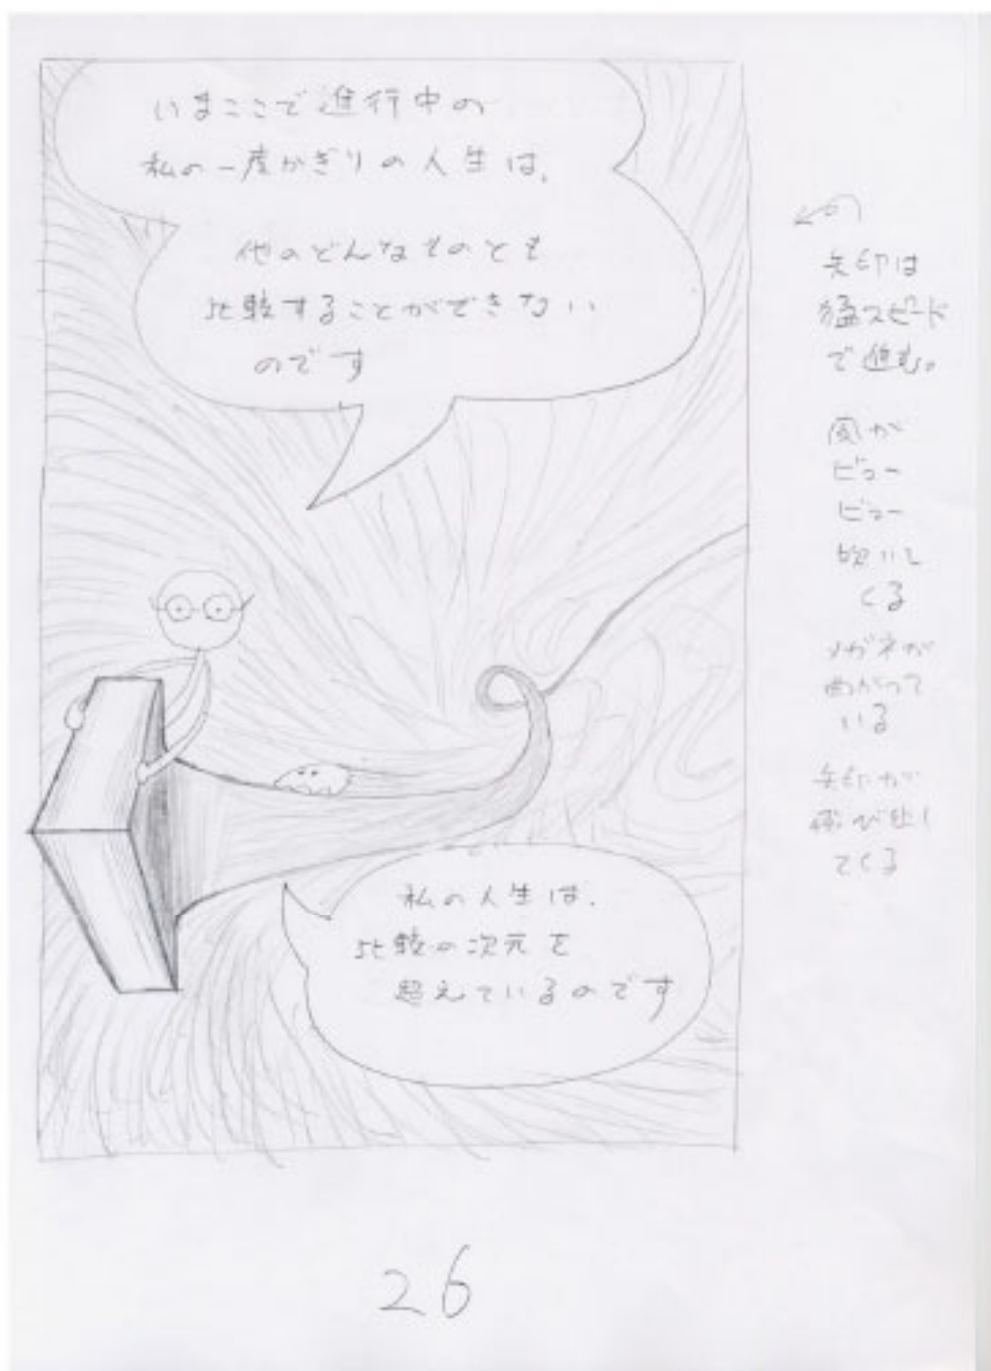 いまここで進行中の
私の一度かぎりの人生は、
他のどんなものとも
比較することができない
のです
私の人生は、
比較の次元を
超えているのです
矢印は
猛スピード
で進む。
風が
ビュー
ビュー
吹いて
くる
メガネが
曲がって
いる
矢印が
飛び出し
てくる
26